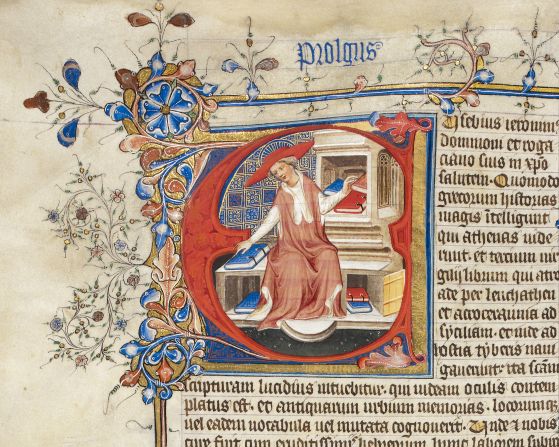 Prolgus
Usebius ieronimus
Domnioni et roga
ciano suis in xpo
salutem. Quomodo
grecorum historias
magis intelligunt
qui athenas uide
runt. et tercium uir
gilij librum qui
de per leuchathen
et acroceraunia ad
syciliam. et inde ad
hostia tyberis naui
gauerint. ita scam
scripturam lucidius intuebitur. qui iudeam oculis contem
platus est. et antiquarum urbium memorias.
uel eadem uocabula uel mutata cognouerit. Unde et
cure fuit cum hebreorum hunc laborem